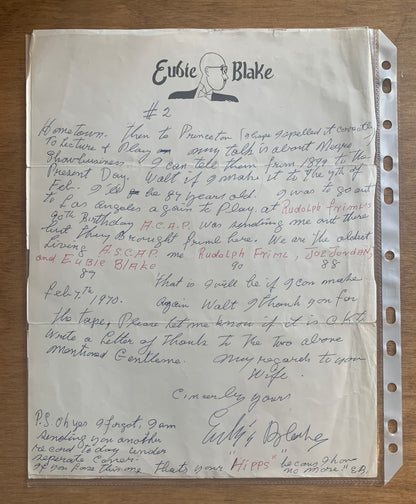 Eubie Blake
#2
Hometown. Then to Princeton (I hope I spelled it correctly)
to Lecture & Play my talk is about Negro
Showbusiness. I can tell them from 1899 to the
Present Day. Walt if I make it to the 7th of
Feb. I'll be 87 years old. I was to go out
to Los Angeles again to Play, at Rudolph Frimls
90th Birthday A.C.A.P. was sending me out there
but they Brought Friml here. We are the oldest
Living A.S.C.A.P. me Rudolph Friml, Joe Jordan,
and Eubie Blake. 90 88
87 that is I will be if I can make
Feb-7th 1970. Again Walt I thank you for
the tape, Please let me know if it is O.K. to
Write a Letter of thanks to the two above
mentioned Gentlemen. My regards to your
Wife.
Cincerly yours
Eubie Blake
P.S. Oh yes I forgot, I am
sending you another
record today under
seperate Cover.
if you lose this one thats your "Hipps" becaus I have
no more" E.B.